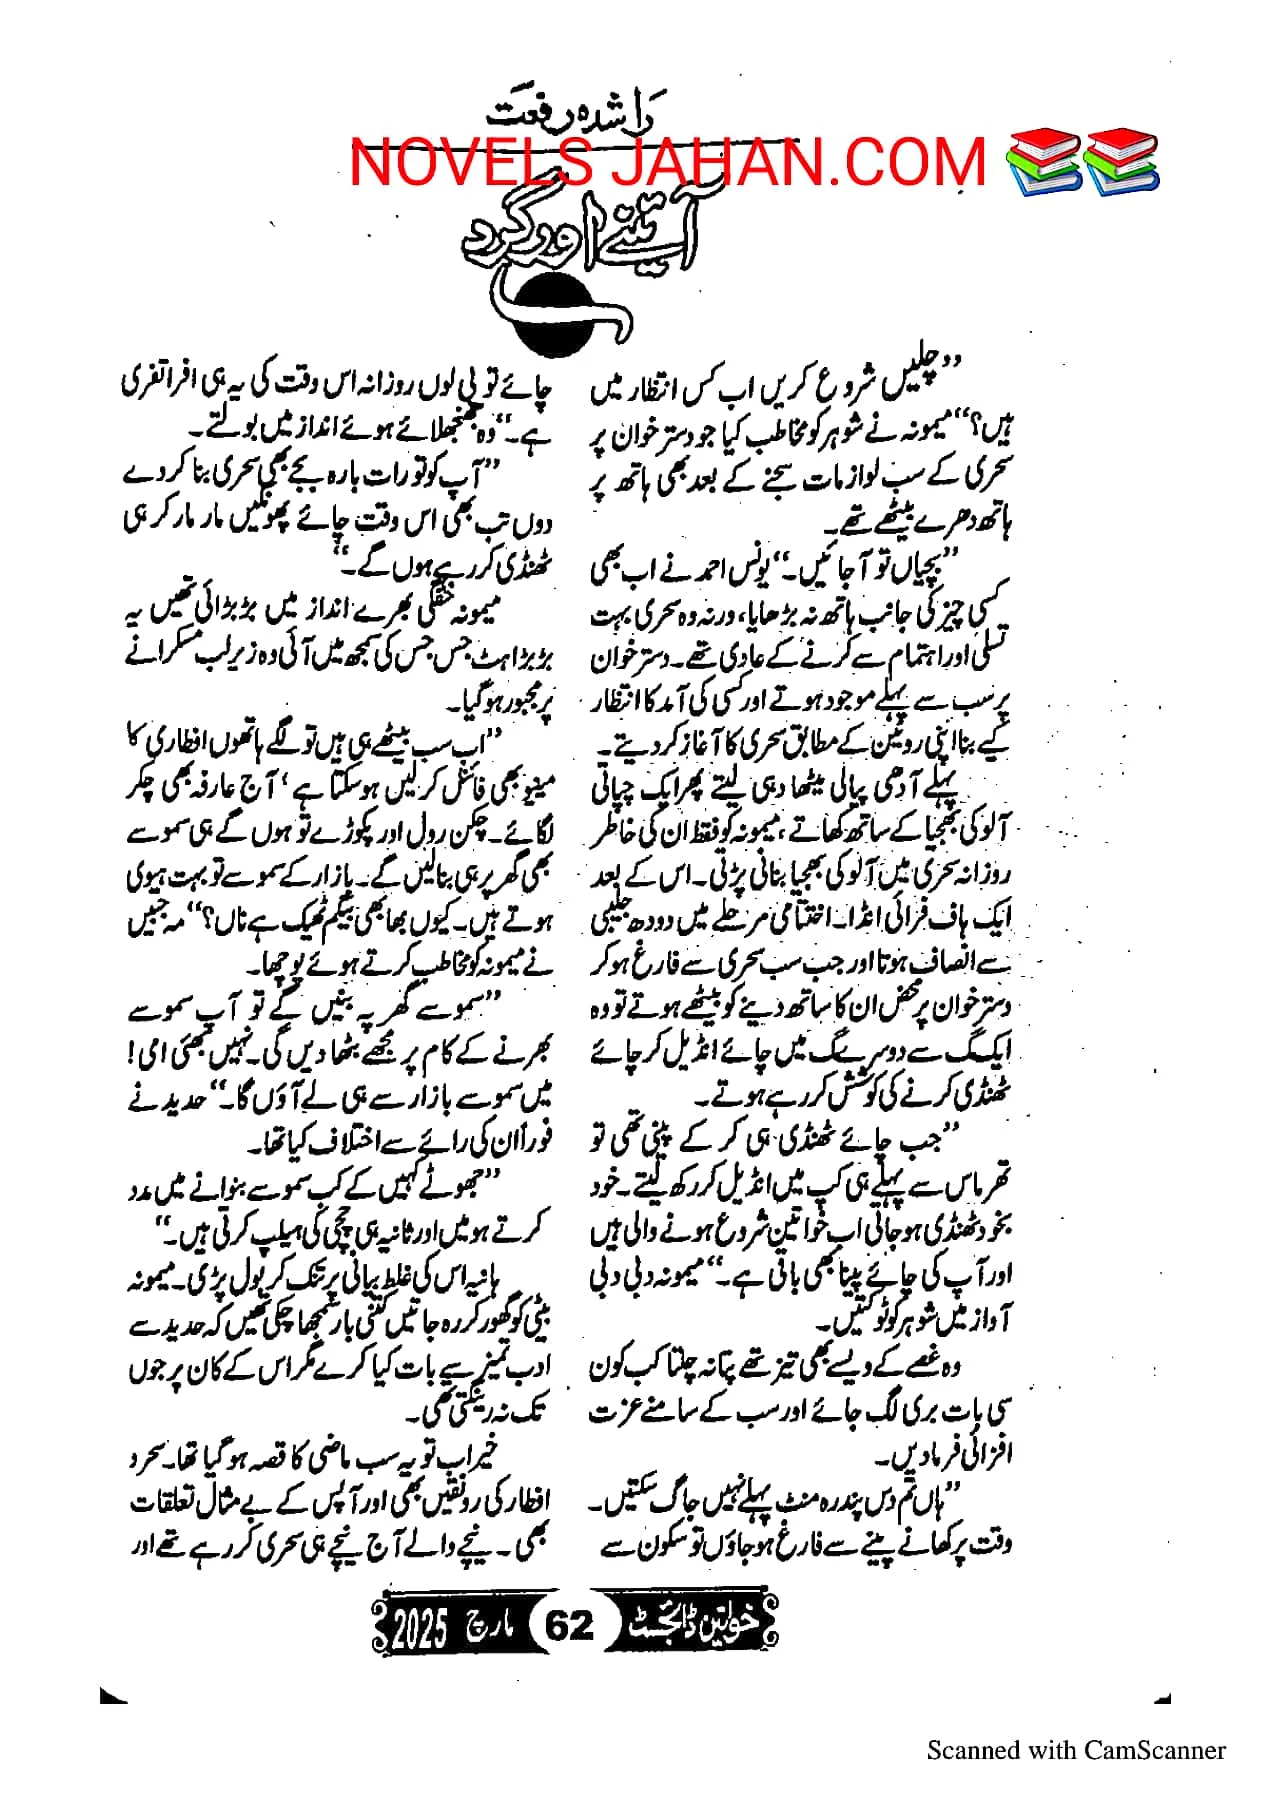 راشدہ رفعت
NOVELS JAHAN.COM
آئینے اور گرد
”چلیں شروع کریں اب کس انتظار میں
ہیں؟“ میمونہ نے شوہر کو مخاطب کیا جو دسترخوان پر
سحری کے سب لوازمات سجنے کے بعد بھی ہاتھ پر
ہاتھ دھرے بیٹھے تھے۔
”بچیاں تو آ جائیں۔“ یونس احمد نے اب بھی
کسی چیز کی جانب ہاتھ نہ بڑھایا، ورنہ وہ سحری بہت
تسلی اور اہتمام سے کرنے کے عادی تھے۔ دسترخوان
پر سب سے پہلے موجود ہوتے اور کسی کی آمد کا انتظار
کیے بنا اپنی روٹین کے مطابق سحری کا آغاز کر دیتے۔
پہلے آدھی پیالی میٹھا دہی لیتے پھر ایک چپاتی
آلو کی بھجیا کے ساتھ کھاتے، میمونہ کو فقط ان کی خاطر
روزانہ سحری میں آلو کی بھجیا بنانی پڑتی۔ اس کے بعد
ایک ہاف فرائی انڈا۔ اختتامی مرحلے میں دودھ جلیبی
سے انصاف ہوتا اور جب سب سحری سے فارغ ہو کر
دسترخوان پر محض ان کا ساتھ دینے کو بیٹھے ہوتے تو وہ
ایک مگ سے دوسرے مگ میں چائے انڈیل کر چائے
ٹھنڈی کرنے کی کوشش کر رہے ہوتے۔
”جب چائے ٹھنڈی ہی کر کے پینی تھی تو
تھرماس سے پہلے ہی کپ میں انڈیل کر رکھ لیتے۔ خود
بخود ٹھنڈی ہو جاتی اب خواتین شروع ہونے والی ہیں
اور آپ کی چائے پینا بھی باقی ہے۔“ میمونہ دبی دبی
آواز میں شوہر کو ٹوکتیں۔
وہ غصے کے ویسے بھی تیز تھے پتا نہ چلتا کب کون
سی بات بری لگ جائے اور سب کے سامنے عزت
افزائی فرما دیں۔
”ہاں تم دس پندرہ منٹ پہلے نہیں جاگ سکتیں۔
وقت پر کھانے پینے سے فارغ ہو جاؤں تو سکون سے
چائے تو پی لوں روزانہ اس وقت کی یہ ہی افراتفری
ہے۔“ وہ جھنجھلائے ہوئے انداز میں بولتے۔
”آپ کو تو رات بارہ بجے بھی سحری بنا کر دے
دوں تب بھی اس وقت چائے پھونکیں مار مار کر ہی
ٹھنڈی کر رہے ہوں گے۔“
میمونہ خفگی بھرے انداز میں بڑبڑاتی تھیں یہ
بڑبڑاہٹ جس جس کی سمجھ میں آتی وہ زیر لب مسکرانے
پر مجبور ہو گیا۔
”اب سب بیٹھے ہی ہیں تو لگے ہاتھوں افطاری کا
مینیو بھی فائنل کر لیں ہو سکتا ہے، آج عارفہ بھی چکر
لگائے۔ چکن رول اور پکوڑے تو ہوں گے ہی سموسے
بھی گھر پر ہی بنا لیں گے۔ بازار کے سموسے تو بہت ہیوی
ہوتے ہیں۔ کیوں بھابھی بیگم ٹھیک ہے ناں؟“ مہ جبیں
نے میمونہ کو مخاطب کرتے ہوئے پوچھا۔
”سموسے گھر پہ بنیں گے تو آپ سموسے
بھرنے کے کام پر مجھے بٹھا دیں گی۔ نہیں بھئی امی!
میں سموسے بازار سے ہی لے آؤں گا۔“ حدید نے
فوراً ان کی رائے سے اختلاف کیا تھا۔
”جھوٹے کہیں کے کب سموسے بنوانے میں مدد
کرتے ہو میں اور ثانیہ ہی چچی کی ہیلپ کرتی ہیں۔“
ہانیہ اس کی غلط بیانی پر تنک کر بول پڑی۔ میمونہ
بیٹی کو گھور کر رہ جاتیں کتنی بار سمجھا چکی تھیں کہ حدید سے
ادب تمیز سے بات کیا کرے مگر اس کے کان پر جوں
تک نہ رینگتی تھی۔
خیر اب تو یہ سب ماضی کا قصہ ہو گیا تھا۔ سحر و
افطار کی رونقیں بھی اور آپس کے بے مثال تعلقات
بھی۔ نیچے والے آج نیچے ہی سحری کر رہے تھے اور
خواتین ڈائجسٹ 62 مارچ 2025
Scanned with CamScanner